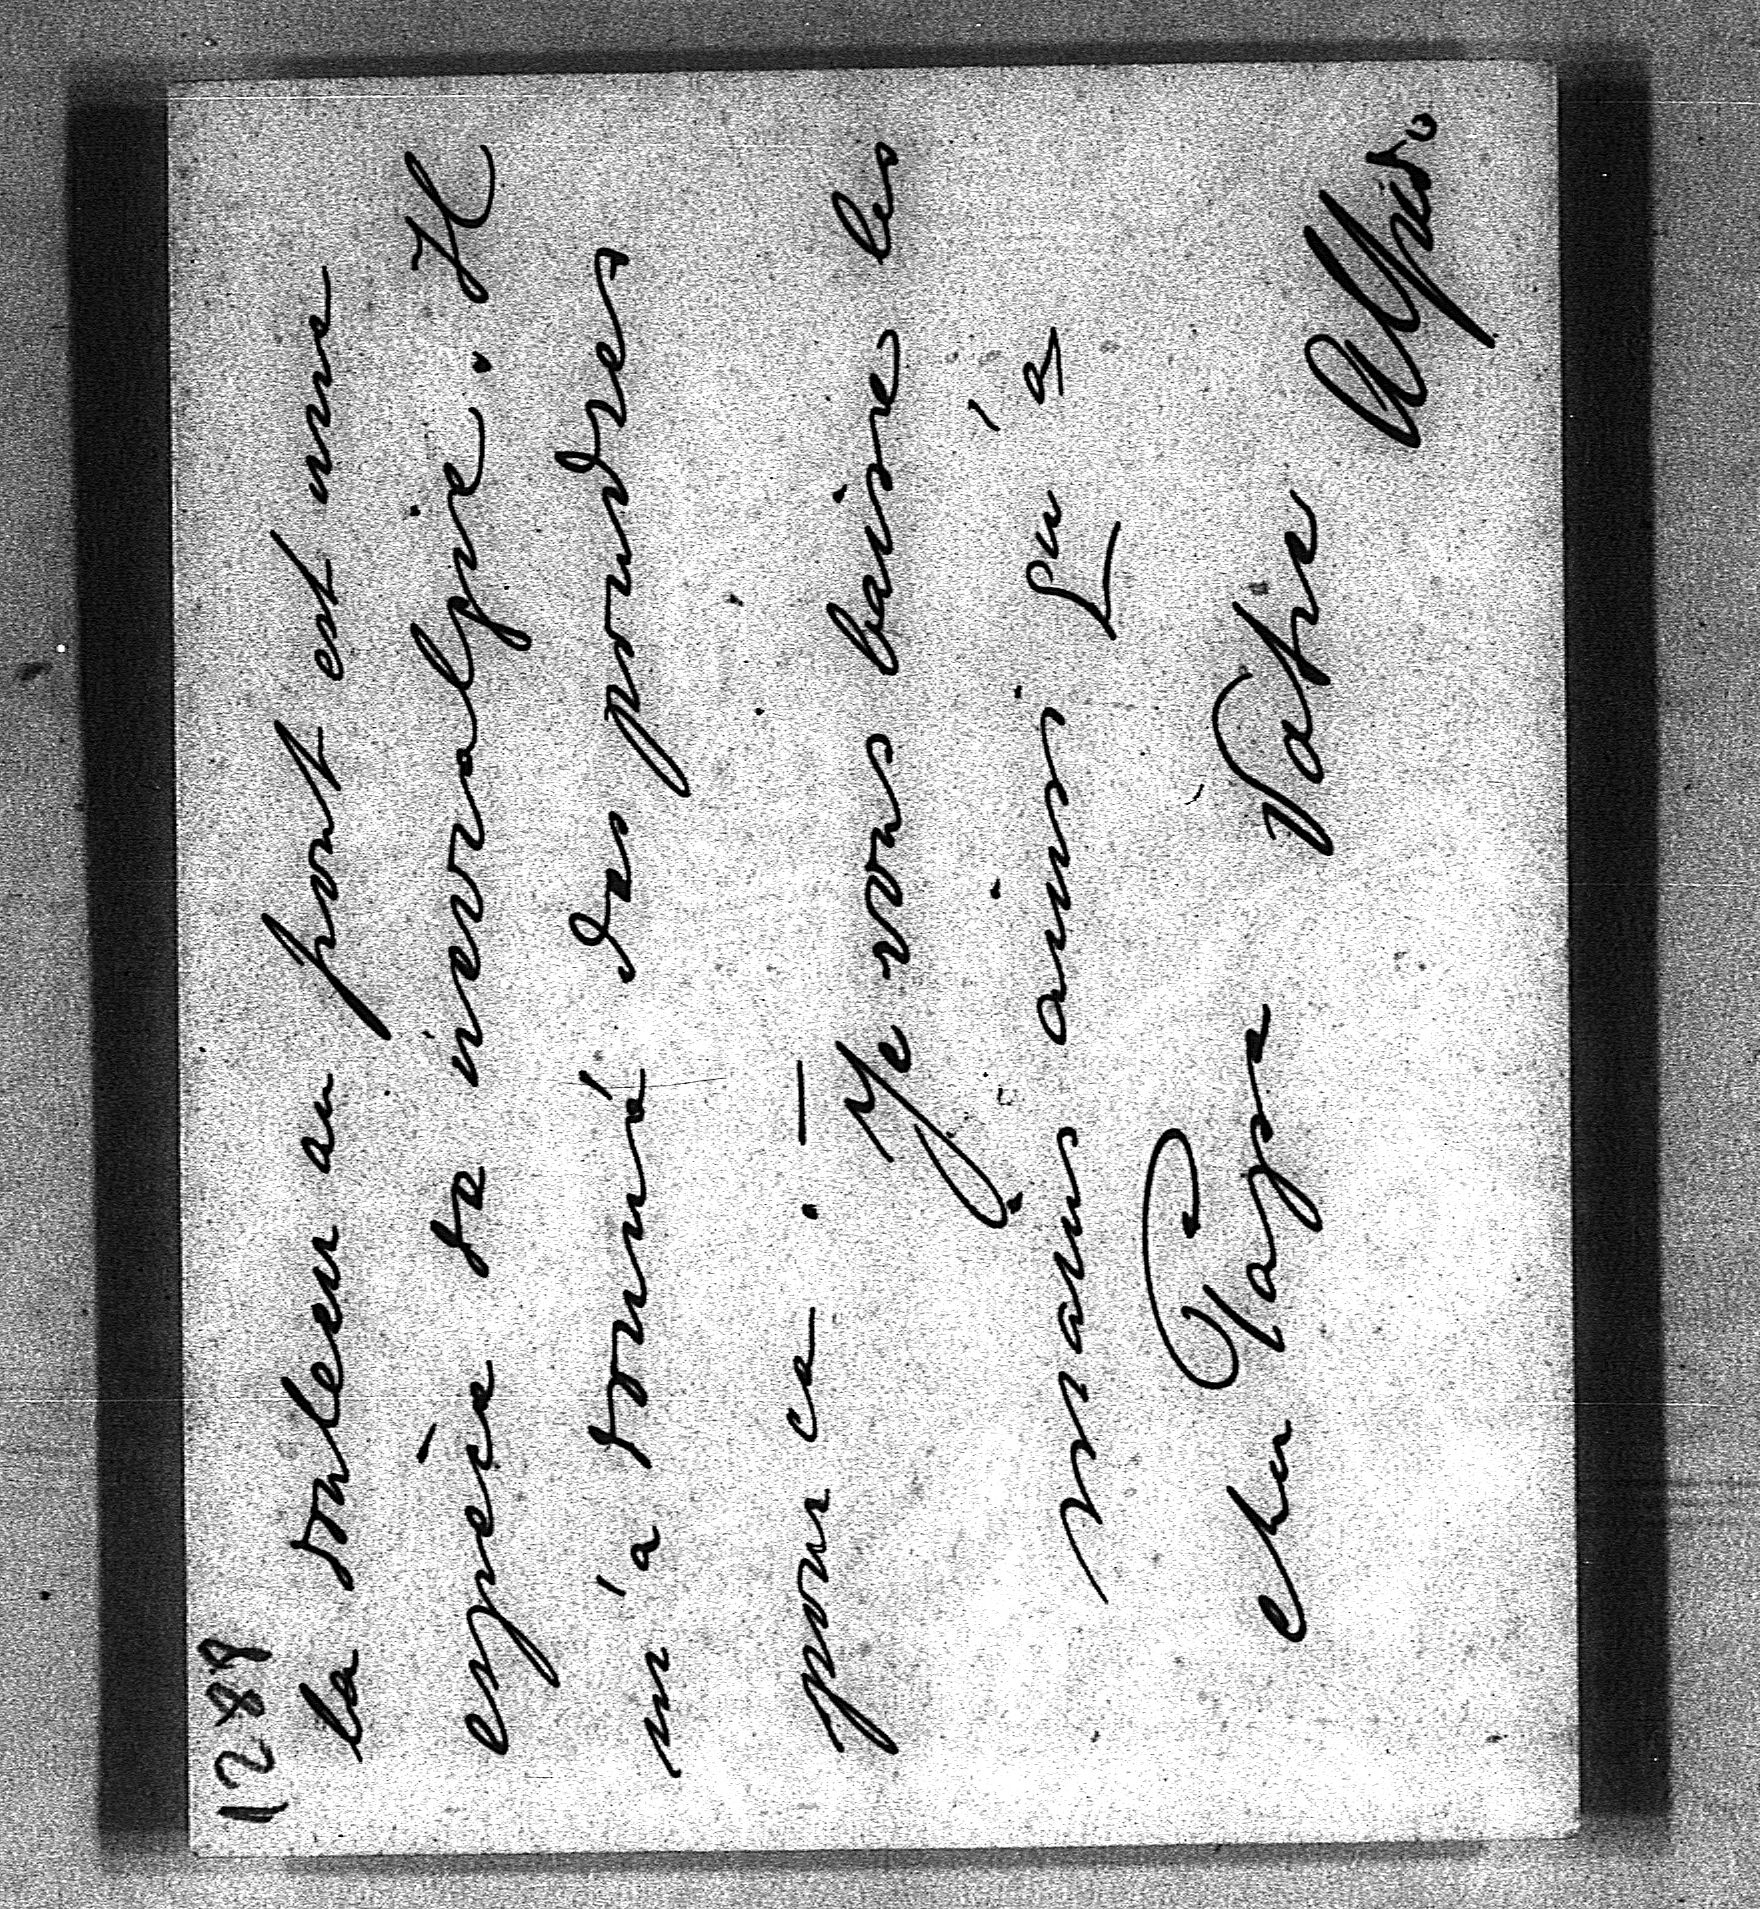 1288
la douleur au front est une
espèce de nevralgie. Il
m'a donné des poudres
pour ca. — Je vous baise les
mains ainsi qu'a
cher Papa Votre